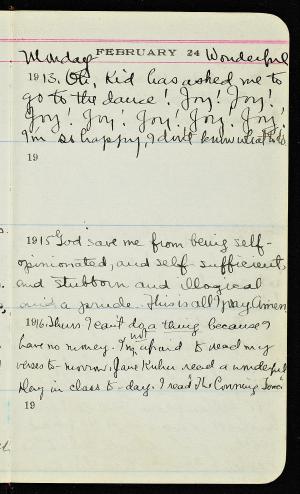 Monday FEBRUARY 24 Wonderful
1913. Oh, Kid has asked me to
go to the dance! Joy! Joy!
Joy! Joy! Joy! Joy! Joy!
I'm so happy, I don't know what to do.
19
1915 God save me from being self-
opinionated, and self-sufficient,
and stubborn and illogical
and a prude. This is all I pray. Amen
1916. Thurs I can't do a thing because I
have no money. I'm not afraid to read my
verses to-morrow. Jane Kuhn read a wonderful
play in class to-day. I read "The
19